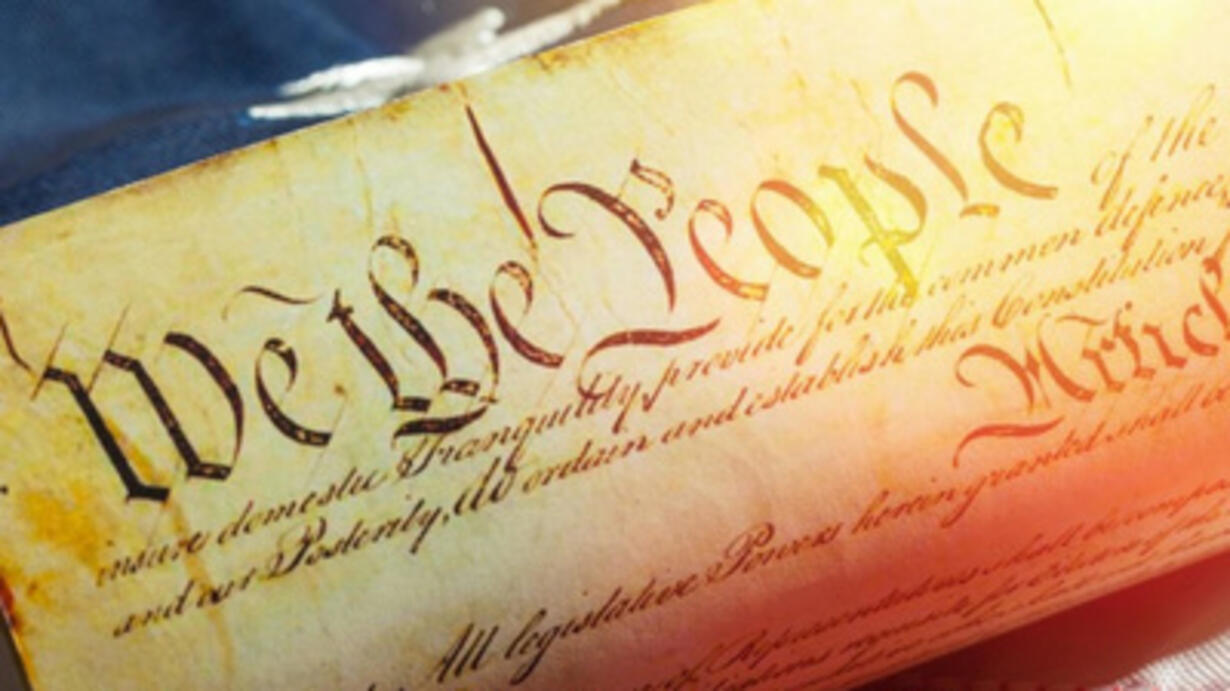 We the People of the
insure domestic Tranquility, provide for the common defence
and our Posterity, do ordain and establish this Constitution
Articl
All legislative Powers herein granted shall
of Representatives shall